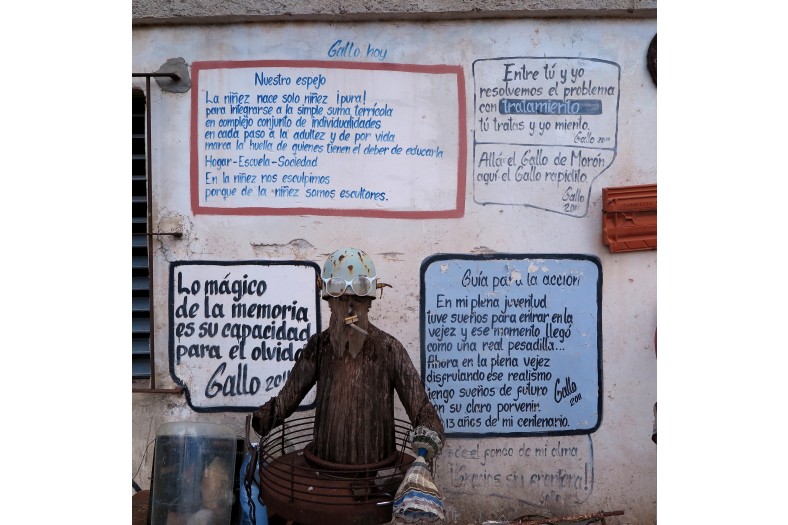 Gallo hoy
Nuestro espejo
La niñez nace solo niñez ¡pura!
para integrarse a la simple suma terrícola
en complejo conjunto de individualidades
en cada paso a la adultez y de por vida
marca la huella de quienes tienen el deber de educarla
Hogar-Escuela-Sociedad
En la niñez nos esculpimos
porque de la niñez somos escultores.
Entre tú y yo
resolvemos el problema
con tratamiento
tú tratas y yo miento.
Gallo 2011
Allá el Gallo de Morón
aquí el Gallo rapidito.
Gallo
2011
Lo mágico
de la memoria
es su capacidad
para el olvido
Gallo 2011
Guía para la acción
En mi plena juventud
tuve sueños para entrar en la
vejez y ese momento llegó
como una real pesadilla...
Ahora en la plena vejez
disfrutando ese realismo
tengo sueños de futuro
con su claro porvenir.
13 años de mi centenario.
Gallo
2011
el fondo de mi alma
¡Gracias sin frontera!